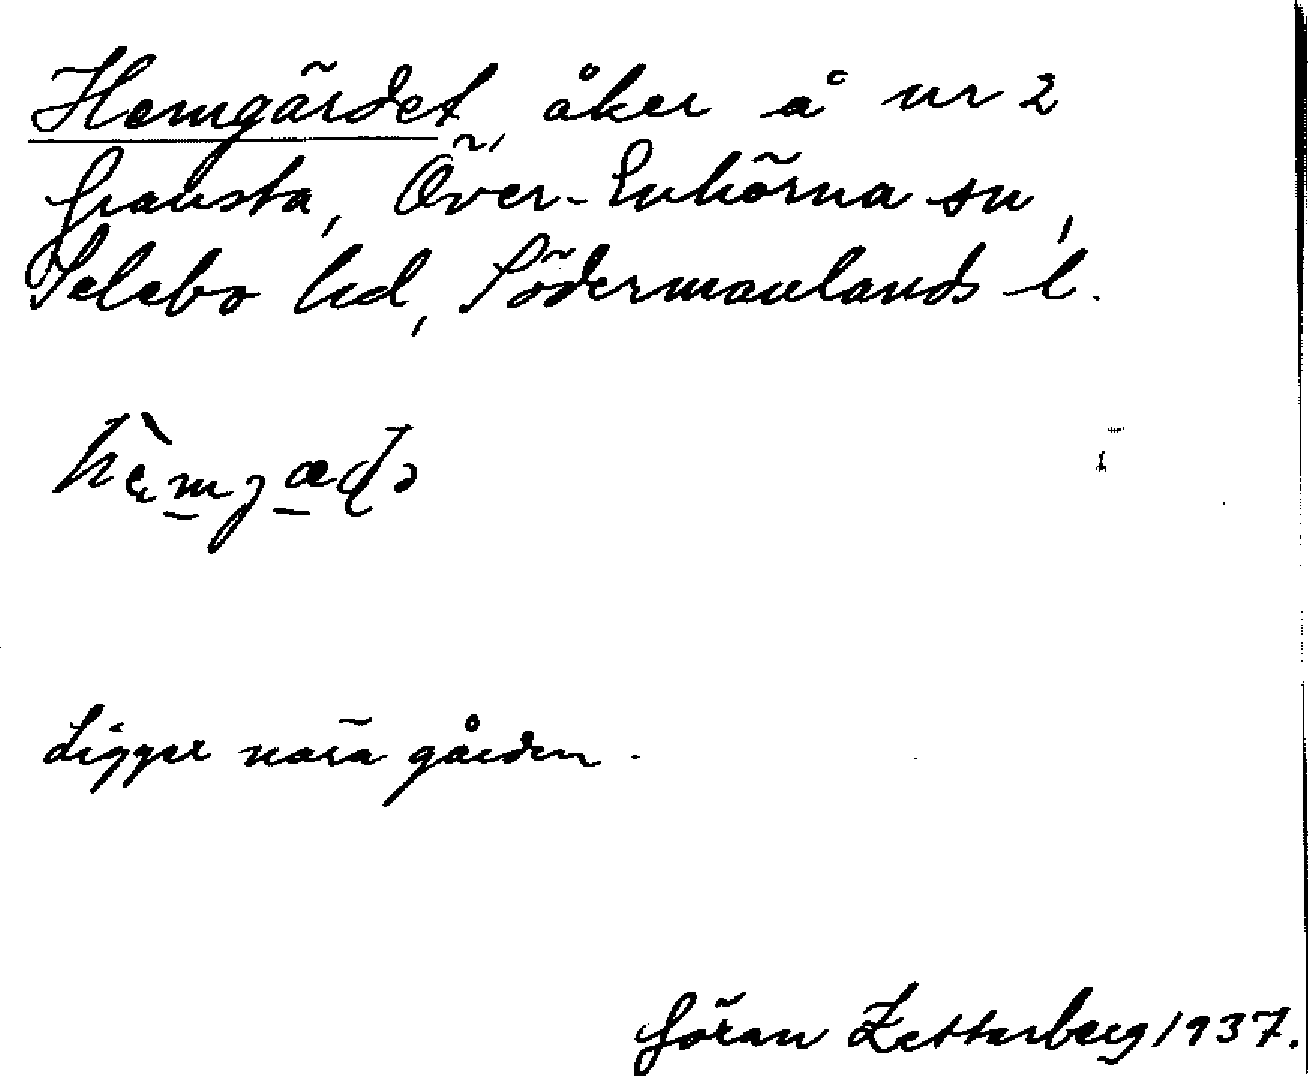 Hemgärdet, åker å nr 2
Gransta, Över-Enhörna sn,
Selebo hd, Södermanlands l.
Ligger nära gården.
Göran Zetterberg 1937.